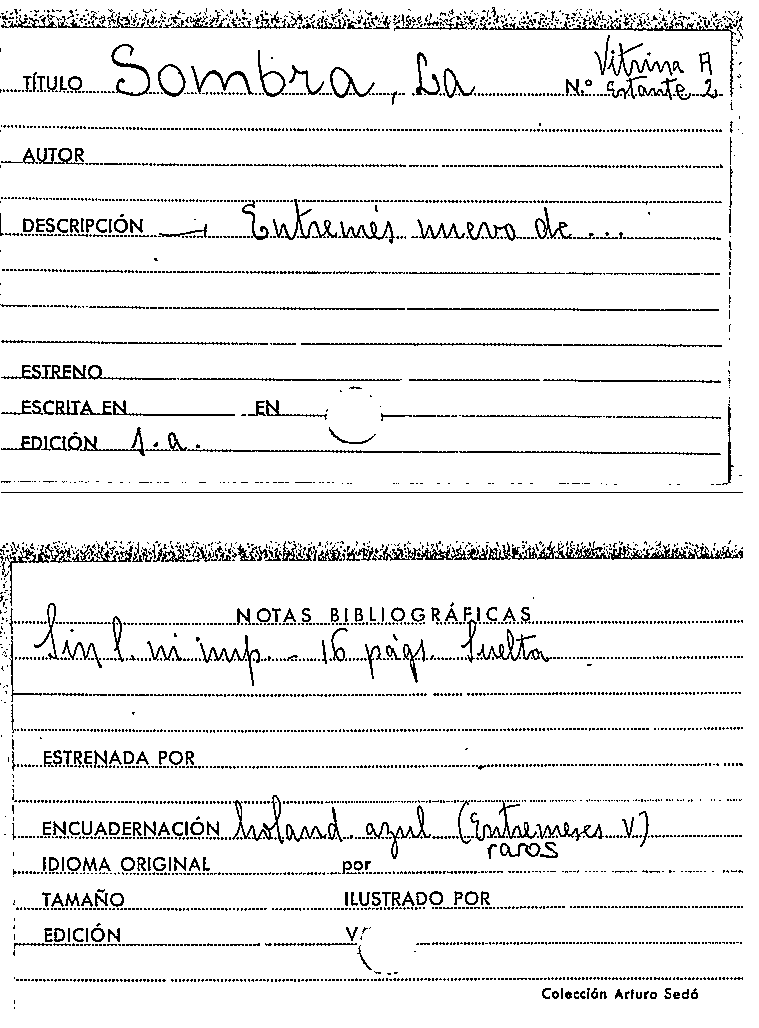 TÍTULO Sombra, La N.º Vitrina A
Estante 2
AUTOR
DESCRIPCIÓN Entremés nuevo de ...
ESTRENO
ESCRITA EN EN
EDICIÓN s.a.
NOTAS BIBLIOGRÁFICAS
Sin l. ni imp. - 16 págs. Suelta
ESTRENADA POR
ENCUADERNACIÓN holand. azul (Entremeses V)
raros
IDIOMA ORIGINAL por
TAMAÑO ILUSTRADO POR
EDICIÓN
Colección Arturo Sedó